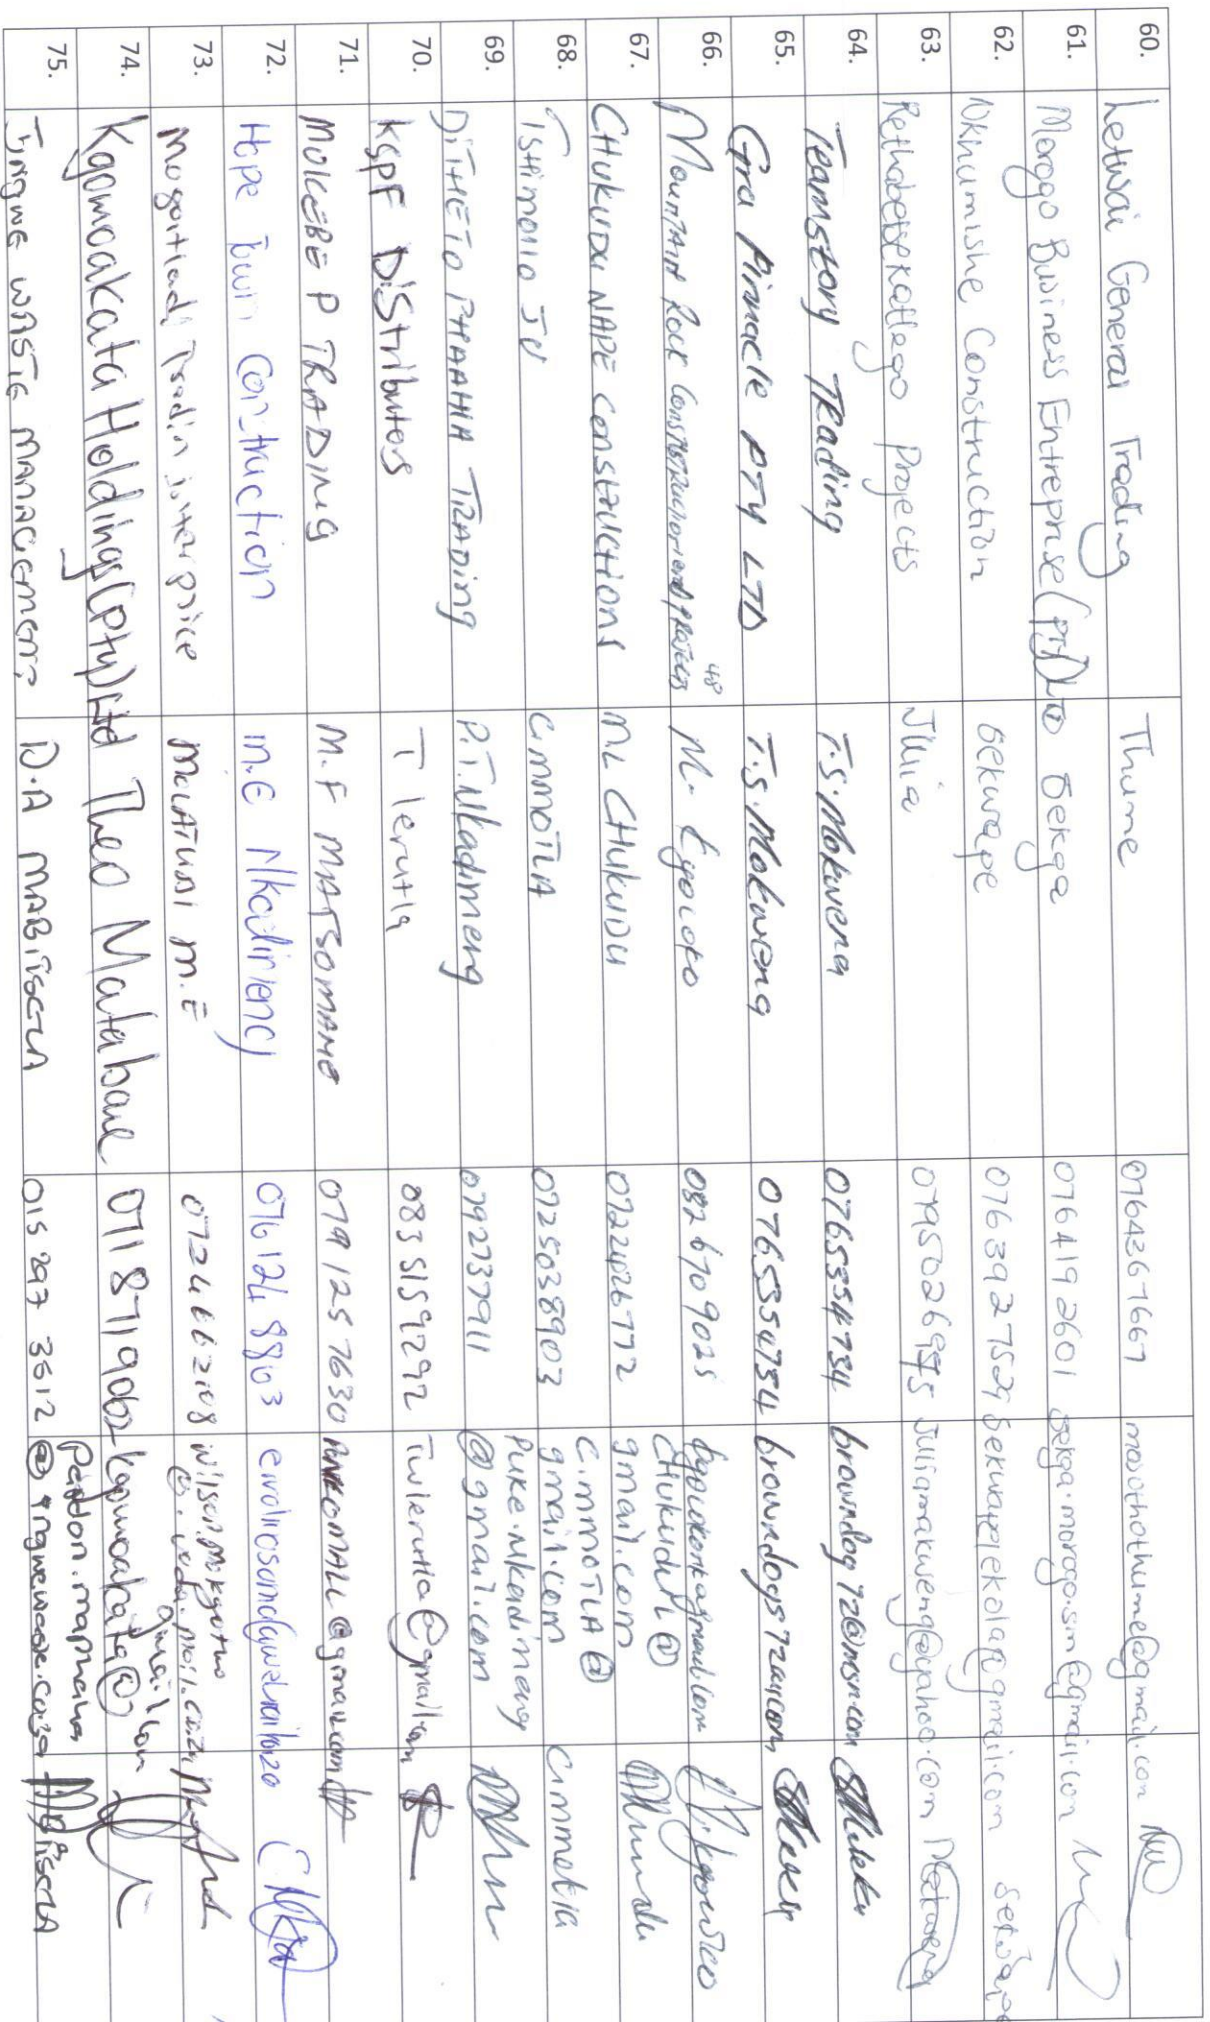 60. Letwai General Trading Thume 0764367667 masothothume@gmail.com
61. Morogo Business Entreprise (Pty) LTD Sekga 0764192601 sekga.morogo.sm@gmail.com
62. Nkhumishe Construction Sekwape 0763927529 sekwapelekola@gmail.com Sekwape
63. Rethabetsekatlego Projects Julia 0795026995 juliamakweng@yahoo.com
64. Teamstory TRading T.S. Mokwena 0765554734 browndog72@msn.com
65. Gra Pinnacle PTY LTD T.S. Mokwena 0765554734
66. Mountain Rock Construction and projects M. Kgoloko 0826709025
67. CHUKUDU NAPE CONSTRUCTIONS M.L CHUKUDU 0722426772 CHUKUDUML@
gmail.com
68. TSHIMOLLO JV C.MMOTLA 0725038903 C.MMOTLA@
gmail.com
69. DITHETO PHAAHLA TRADING P.T. Nkadimeng 0792737911 Puke.nkadimeng
@gmail.com
70. KSPF DiStributos T lerutla 0835159292 Twlerutla@gmail.com
71. MOLCEBE P TRADING M.F MATSOMANE 0791257630
72. Hope Town Construction M.E Nkadimeng 0761248803
73. Mogoitiadi Tradin interprice M.E 0724662108
74. Kgomoakata Holdings (Pty) Ltd Theo Matabane 0118719062 kgomoakata@
gmail.com
75. INGWE WASTE MANAGEMENT D.A MABITSELA 015 297 3612